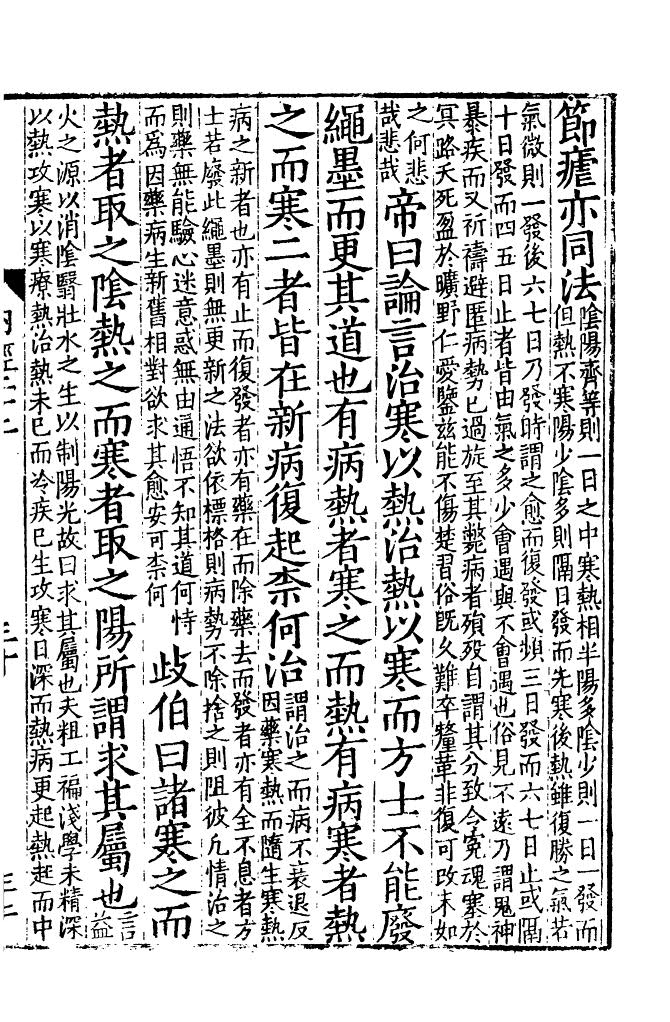 節瘧亦同法陰陽齊等則一日之中寒熱相半陽多陰少則一日一發而
但熱不寒陽少陰多則隔日發而先寒後熱雖復勝之氣若
氣微則一發後六七日乃發時謂之愈而復發或頻三日發而六七日止或隔
十日發而四五日止者皆由氣之多少會遇與不會遇也俗見不遠乃謂鬼神
暴疾而又祈禱避匿病勢已過旋至其斃病者殞歿自謂其分致令寃魂塞於
冥路夭死盈於曠野仁愛鑒茲能不傷楚習俗既久難卒釐革非復可改末如
之何悲
哉悲哉帝曰論言治寒以熱治熱以寒而方士不能廢
繩墨而更其道也有病熱者寒之而熱有病寒者熱
之而寒二者皆在新病復起柰何治謂治之而病不衰退反
因藥寒熱而隨生寒熱
病之新者也亦有止而復發者亦有藥在而除藥去而發者亦有全不息者方
士若廢此繩墨則無更新之法欲依標格則病勢不除捨之則阻彼凡情治之
則藥無能驗心迷意惑無由通悟不知其道何恃
而爲因藥病生新舊相對欲求其愈安可柰何歧伯曰諸寒之而
熱者取之陰熱之而寒者取之陽所謂求其屬也言
益
火之源以消陰翳壯水之主以制陽光故曰求其屬也夫粗工褊淺學未精深
以熱攻寒以寒療熱治熱未已而冷疾已生攻寒日深而熱病更起熱起而中
内經二十二
三十